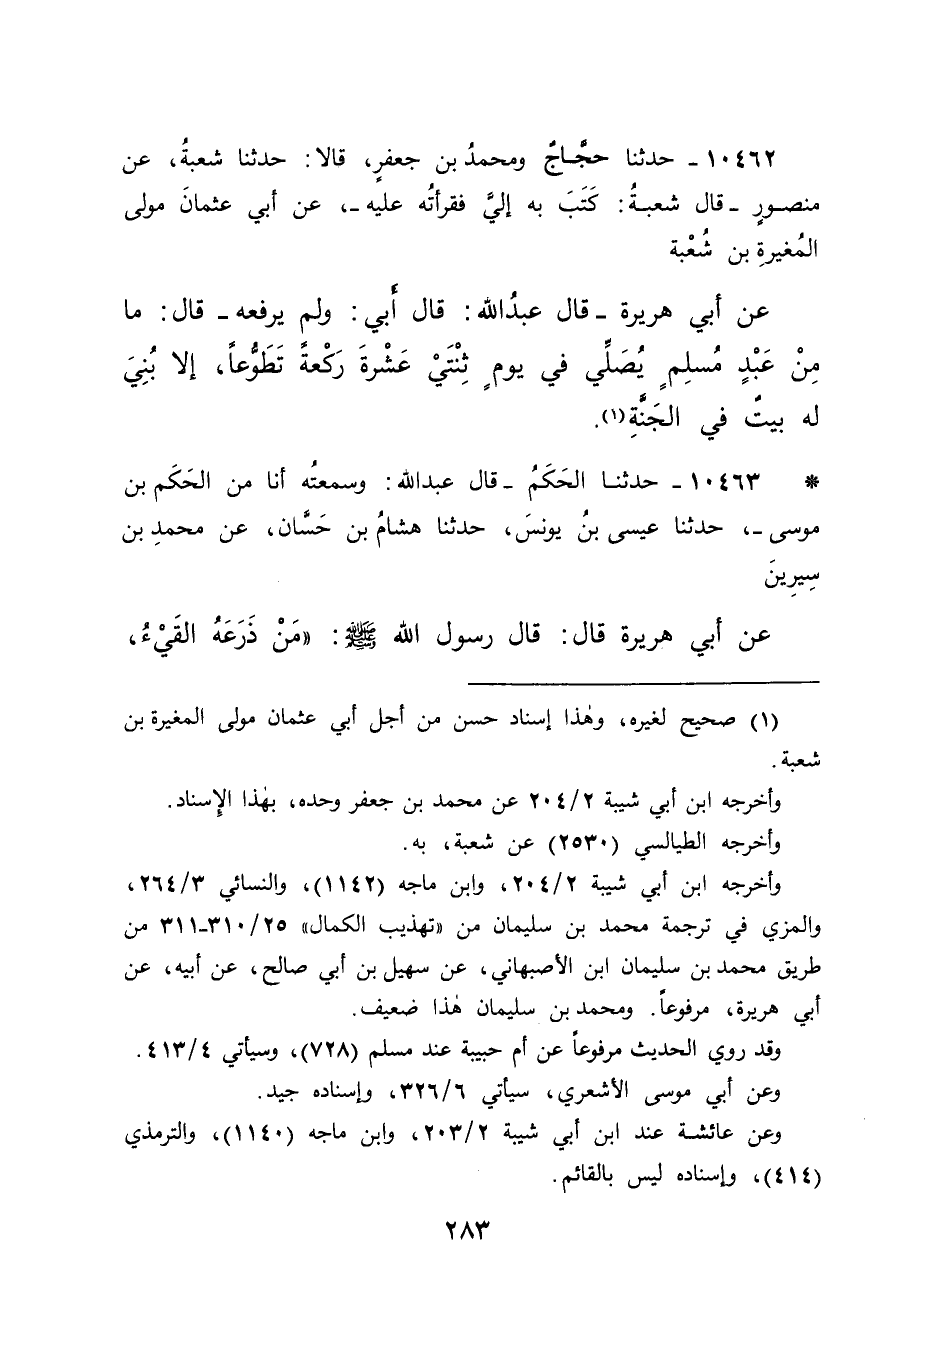 ١٠٤٦٢ ـ حدثنا حجَّاجٌ ومحمدُ بن جعفرٍ، قالا: حدثنا شعبةُ، عن
منصورٍ ـ قال شعبةُ: كَتَبَ به إليَّ فقرأتُه عليه ـ، عن أبي عثمانَ مولى
المُغيرةِ بن شُعْبة
عن أبي هريرة ـ قال عبدُالله: قال أَبي: ولم يرفعه ـ قال: ما
مِنْ عَبْدٍ مُسلِمٍ يُصَلِّي في يومٍ ثِنْتَيْ عَشْرةَ رَكْعةً تَطَوُّعاً، إلا بُنِيَ
له بيتٌ في الجَنَّةِ(١).
* ١٠٤٦٣ ـ حدثنا الحَكَمُ ـ قال عبدالله: وسمعتُه أنا من الحَكَم بن
موسى ـ، حدثنا عيسى بنُ يونسَ، حدثنا هشامُ بن حَسَّان، عن محمدِ بن
سِيرِينَ
عن أبي هريرة قال: قال رسول الله ﷺ: «مَنْ ذَرَعَهُ القَيْءُ،
(١) صحيح لغيره، وهٰذا إسناد حسن من أجل أبي عثمان مولى المغيرة بن
شعبة.
وأخرجه ابن أبي شيبة ٢٠٤/٢ عن محمد بن جعفر وحده، بهٰذا الإسناد.
وأخرجه الطيالسي (٢٥٣٠) عن شعبة، به.
وأخرجه ابن أبي شيبة ٢٠٤/٢، وابن ماجه (١١٤٢)، والنسائي ٢٦٤/٣،
والمزي في ترجمة محمد بن سليمان من «تهذيب الكمال» ٣١٠/٢٥ـ٣١١ من
طريق محمد بن سليمان ابن الأصبهاني، عن سهيل بن أبي صالح، عن أبيه، عن
أبي هريرة، مرفوعاً. ومحمد بن سليمان هٰذا ضعيف.
وقد روي الحديث مرفوعاً عن أم حبيبة عند مسلم (٧٢٨)، وسيأتي ٤١٣/٤.
وعن أبي موسى الأشعري، سيأتي ٣٢٦/٦، وإسناده جيد.
وعن عائشة عند ابن أبي شيبة ٢٠٣/٢، وابن ماجه (١١٤٠)، والترمذي
(٤١٤)، وإسناده ليس بالقائم.
٢٨٣